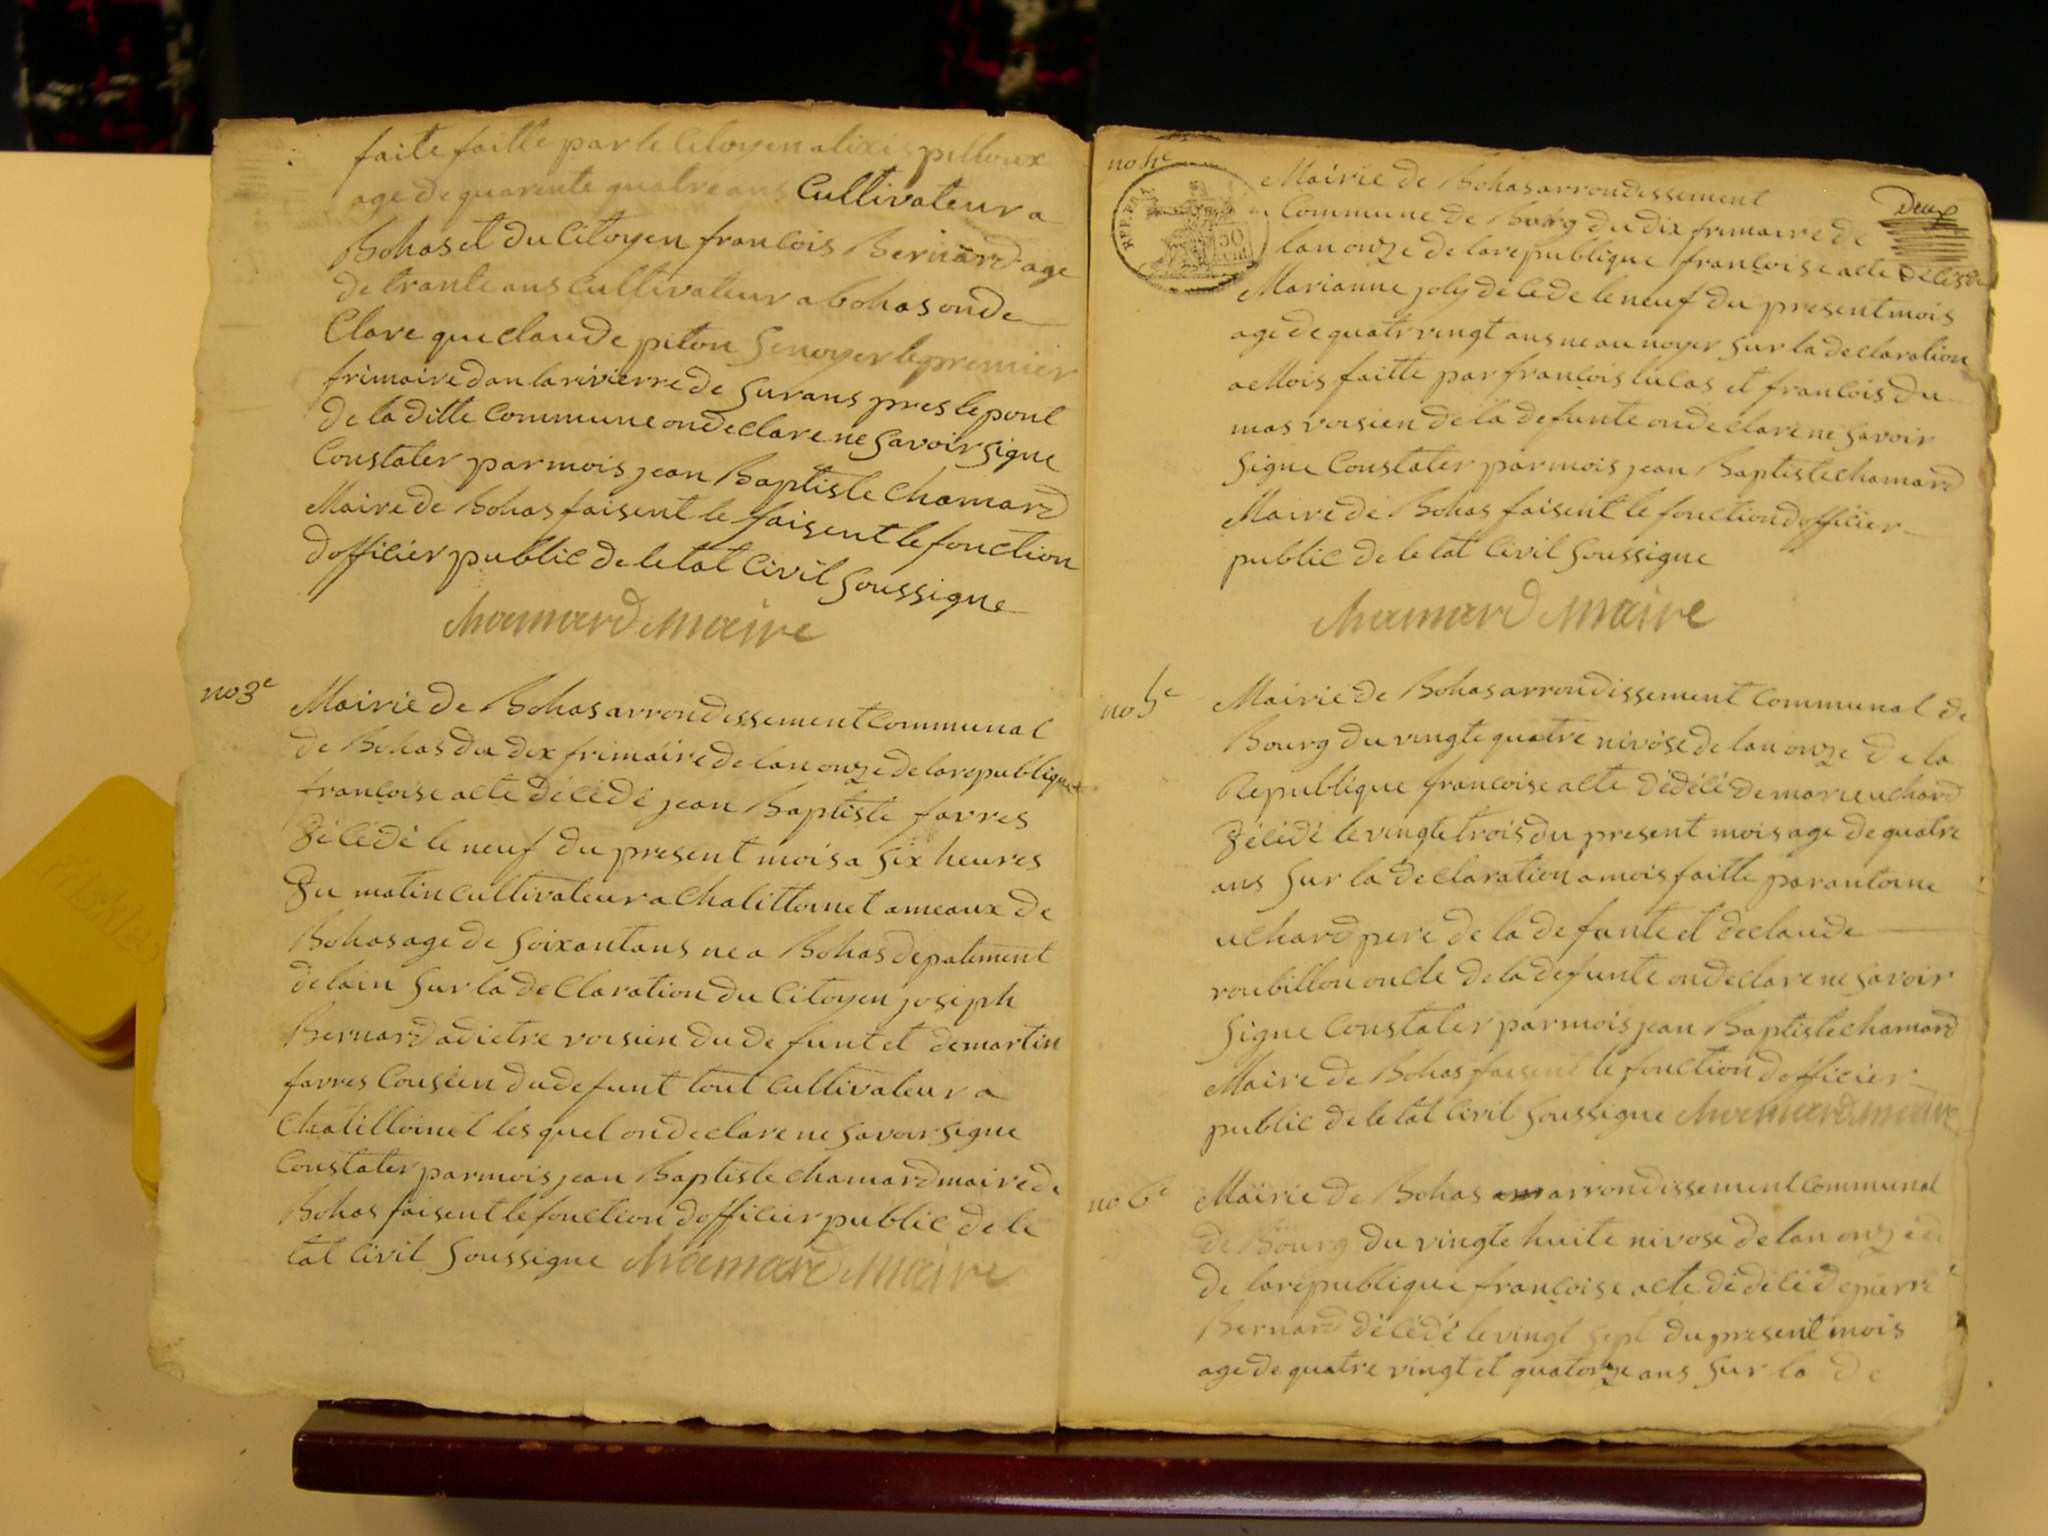 faite faitte par le Citoyen alixis pilloux
age de quarente quatre ans Cultivateur a
Bohas et du Citoyen francois Bernard age
de trante ans Cultivateur a bohas on de
Clare que claude piton Senoyer le premier
frimaire dan la rivierre de Surans pres le pont
de la ditte Commune on declare ne Savoir Signe
Constater par mois jean Baptiste Chamard
Maire de Bohas faisent le faisent le fonction
dofficier public de letat Civil Soussigne
Chamard Maire
no 3e
Mairie de Bohas arrondissement Communal
de Bohas du dix frimaire de lan onze de la republique
francoise acte décédé jean Baptiste farres
décédé le neuf du present mois a Six heures
du matin Cultivateur a Chalittoinet ameaux de
Bohas age de Soixantans ne a Bohas depatement
de lain Sur la declaration du Citoyen joseph
Bernard adietre voisien du defunt et de martin
farres Cousien du defunt tout Cultivateur a
Chatilloinet les quel on declare ne Savoir Signe
Constater par mois jean Baptiste chamard maire de
Bohas faisent le fonction dofficier public de le
tat Civil Soussigne Chamard Maire
no 4e
REP. FRA
50
Deux
Mairie de Bohas arrondissement
Commune de Bourg du dix frimaire de
lan onze de la republique francoise acte
Marianne joly décede le neuf du present mois
age de quatr vingt ans ne au noyer Sur la declaration
a Mois faitte par francois lucas et francois du
mas voisien de la defunte on declare ne Savoir
Signe Constater par mois jean Baptiste chamard
Maire de Bohas faisent le fonction dofficier
public de letat Civil Soussigne
Chamard Maire
no 5e
Mairie de Bohas arrondissement Communal de
Bourg du vingte quatre nivose de lan onze de la
Republique francoise acte dédélé de marie uchard
décédé le vingte trois du present mois age de quatre
ans Sur la declaration a mois faitte par antoine
uchard pere de la defunte et de claude
roubillon oncle de la defunte on declare ne Savoir
Signe Constater par mois jean Baptiste chamard
Maire de Bohas faisent le fonction dofficier
public de letat Civil Soussigne Chamard Maire
no 6e
Mairie de Bohas arrondissement Communal
de Bourg du vingte huite nivose de lan onze
de la republique francoise acte dédélé de pierre
Bernard décédé le vingt Sept du present mois
age de quatre vingt et quatorze ans Sur la de